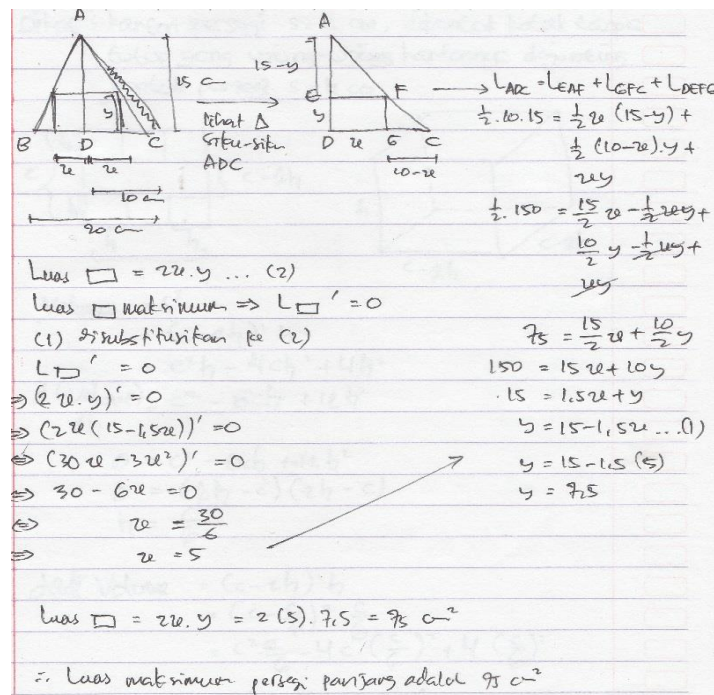 A
15 cm
y
B D C
x x
10 cm
20 cm
lihat Δ
siku-siku
ADC
A
15-y
E F
y
D x G C
10-x
→ L ADC = L EAF + L GFC + L DEFG
½.10.15 = ½x (15-y) +
½ (10-x).y +
xy
½.150 = 15/2 x - ½xy +
10/2 y - ½xy +
xy
75 = 15/2 x + 10/2 y
150 = 15x + 10y
15 = 1,5x + y
y = 15-1,5x ...(1)
y = 15-1,5 (5)
y = 7,5
Luas ▭ = 2x.y ... (2)
Luas ▭ maksimum ⇒ L▭' = 0
(1) disubstitusikan ke (2)
L▭' = 0
⇒ (2x.y)' = 0
⇒ (2x(15-1,5x))' = 0
⇔ (30x-3x²)' = 0
⇒ 30 - 6x = 0
⇔ x = 30/6
⇒ x = 5
Luas ▭ = 2x.y = 2 (5). 7,5 = 75 cm²
∴ Luas maksimum persegi panjang adalah 75 cm²